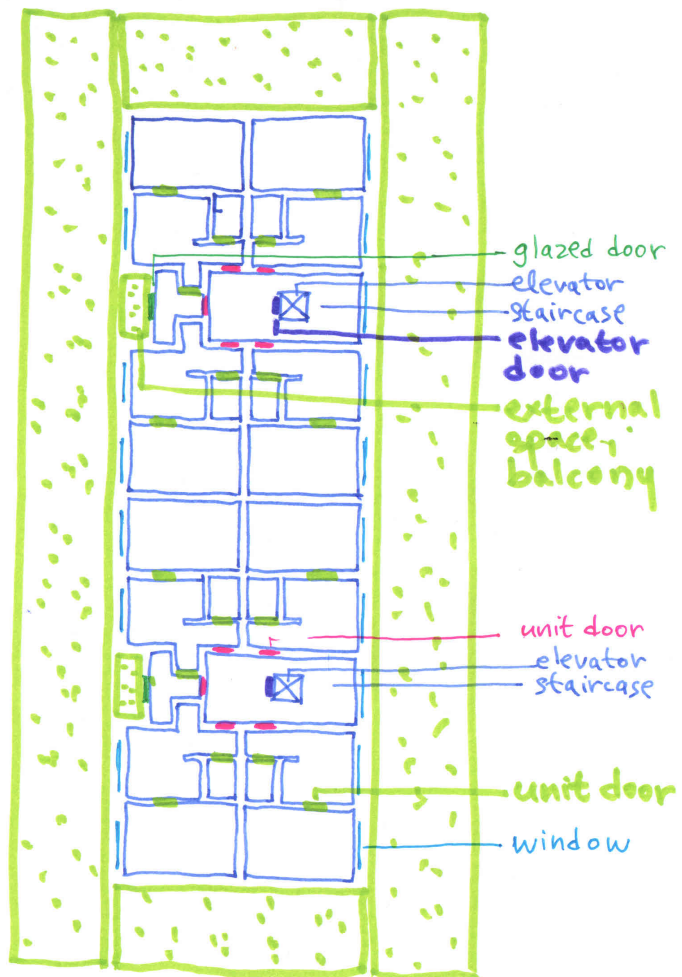 glazed door
elevator
staircase
elevator
door
external
space,
balcony
unit door
elevator
staircase
unit door
window